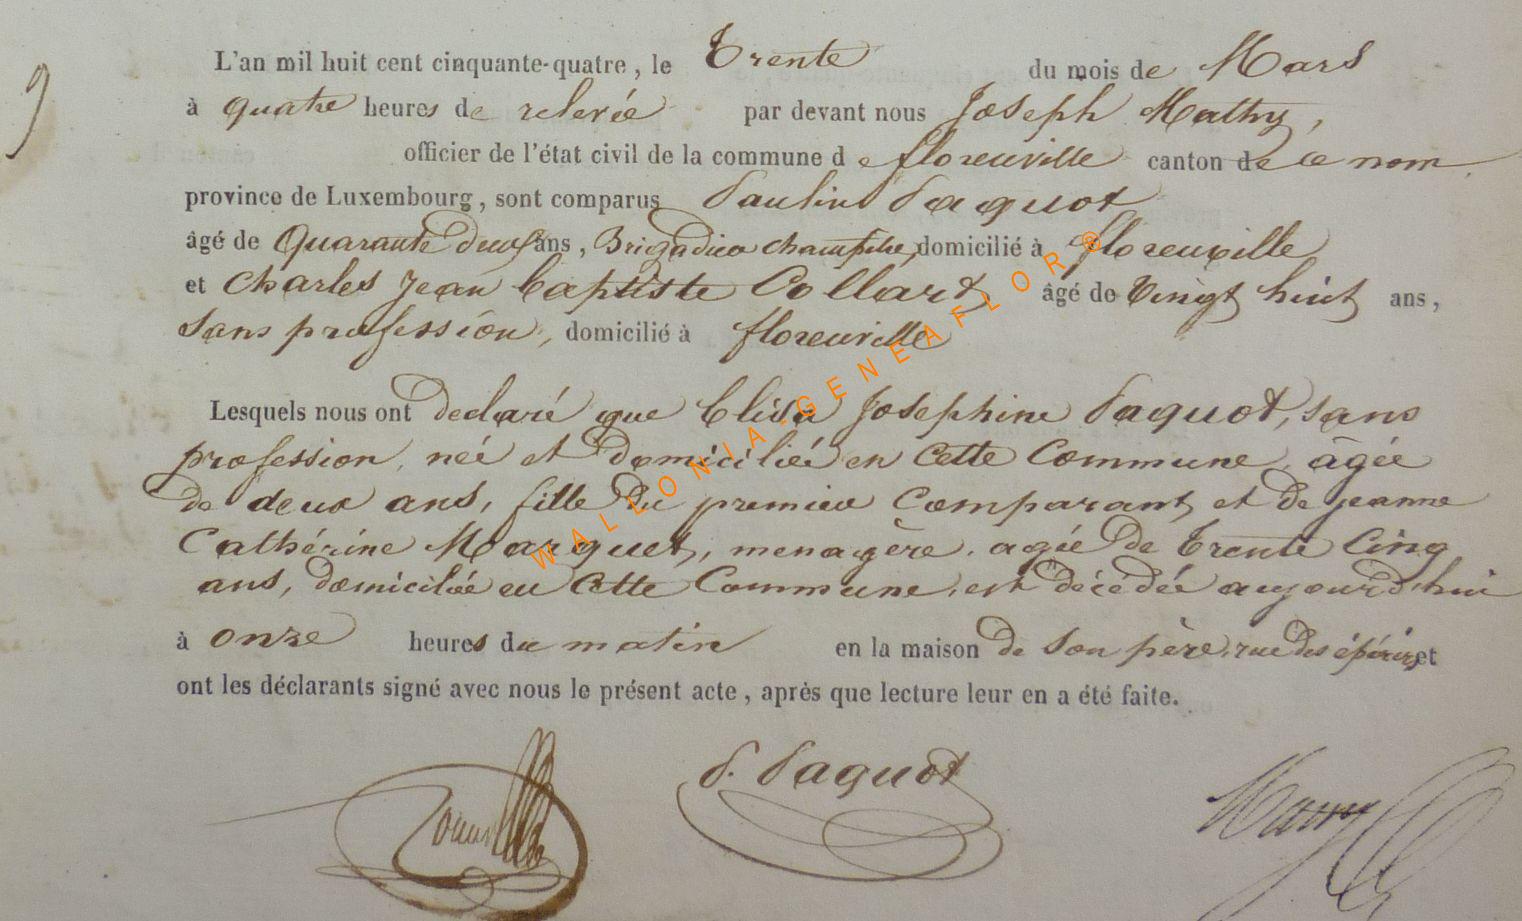 9
L'an mil huit cent cinquante-quatre, le Trente du mois de Mars
à quatre heures de relevée par devant nous Joseph Mathy,
officier de l'état civil de la commune de florenville canton de ce nom,
province de Luxembourg, sont comparus Paulin Paquot
âgé de Quarante deux ans, Brigadier champêtre, domicilié à florenville
et Charles Jean Baptiste Collard, âgé de Vingt huit ans,
sans profession, domicilié à florenville
Lesquels nous ont declaré que Elisa Josephine Paquot, sans
profession, née et domiciliée en cette Commune, âgée
de deux ans, fille du premier Comparant et de jeanne
Cathérine Marquet, menagère, agée de Trente Cinq
ans, domiciliée en cette Commune, est décédée aujourd'hui
à onze heures du matin en la maison de son père, rue des et
ont les déclarants signé avec nous le présent acte, après que lecture leur en a été faite.
P. Paquot
Mathy
WALLONIA.GENEAFLOR®